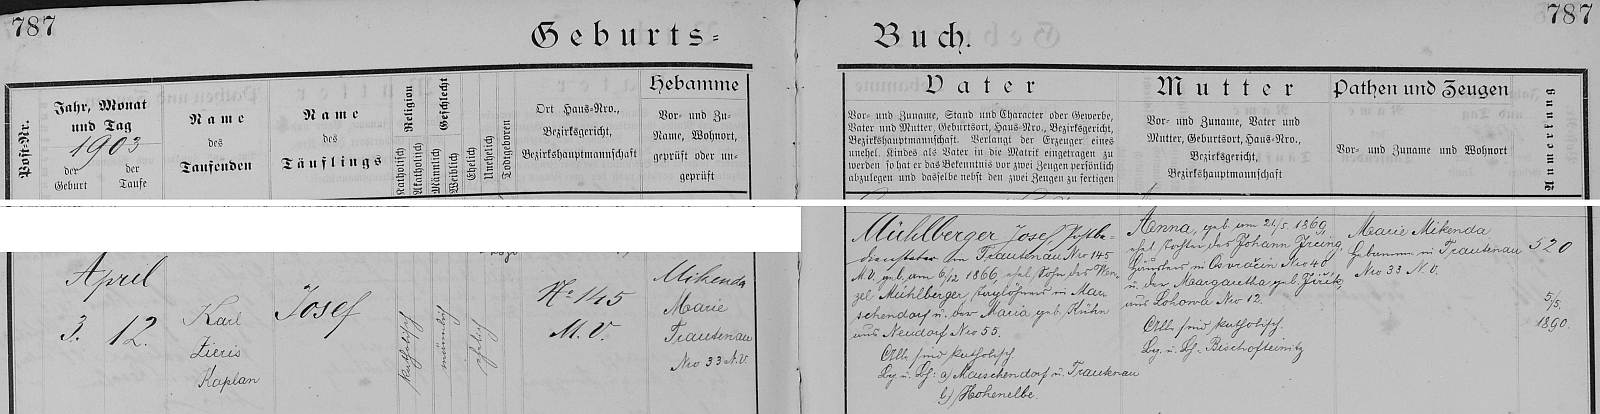 787
787
Geburts=
Buch.
Post-Nr.
Jahr, Monat
und Tag
1903
der
Geburt
der
Taufe
Name
des
Taufenden
Name
des
Täuflings
Religion
Katholisch
Akatholisch
Geschlecht
Männlich
Weiblich
Ehelich
Unehelich
Todtgeboren
Ort Haus-Nro.,
Bezirksgericht,
Bezirkshauptmannschaft
Hebamme
Vor- und Zu-
Name, Wohnort,
geprüft oder un-
geprüft
Vater
Vor- und Zuname, Stand und Character oder Gewerbe,
Vater und Mutter, Geburtsort, Haus-Nro., Bezirksgericht,
Bezirkshauptmannschaft. Verlangt der Erzeuger eines
unehel. Kindes als Vater in die Matrik eingetragen zu
werden so hat er das Bekenntnis vor zwei Zeugen persönlich
abzulegen und dasselbe nebst den zwei Zeugen zu fertigen
Mutter
Vor- und Zuname, Vater und
Mutter, Geburtsort, Haus-Nro.,
Bezirksgericht,
Bezirkshauptmannschaft
Pathen und Zeugen
Vor- und Zuname und Wohnort
Anmerkung
April
3. 12.
Karl
Zieris
Kaplan
Josef
katholisch
männlich
ehelich
No 145
M. V.
Mikenda
Marie
Trautenau
Nro 33 N. V.
Mühlberger Josef, Postbe-
diensteter in Trautenau Nro 145
M. V. geb. am 6/12 1866 ehel. Sohn des Wen-
zel Mühlberger, Taglöhners in Mar-
schendorf u. der Maria geb. Kühn
aus Neudorf Nro 55.
Alle sind katholisch.
Bzg u. Bh: a) Marschendorf u. Trautenau
b) Hohenelbe.
Anna, geb. am 21/5 1869,
ehel. Tochter des Johann
Häuslers in Osvračin Nro 40
u. der Margaretha geb. Jiřik,
aus Lohowa Nro 12.
Alle sind katholisch.
Bzg u. Bh. Bischofteinitz
Marie Mikenda
Hebamme in Trautenau
Nro 33 N. V.
520
5/5.
1890.